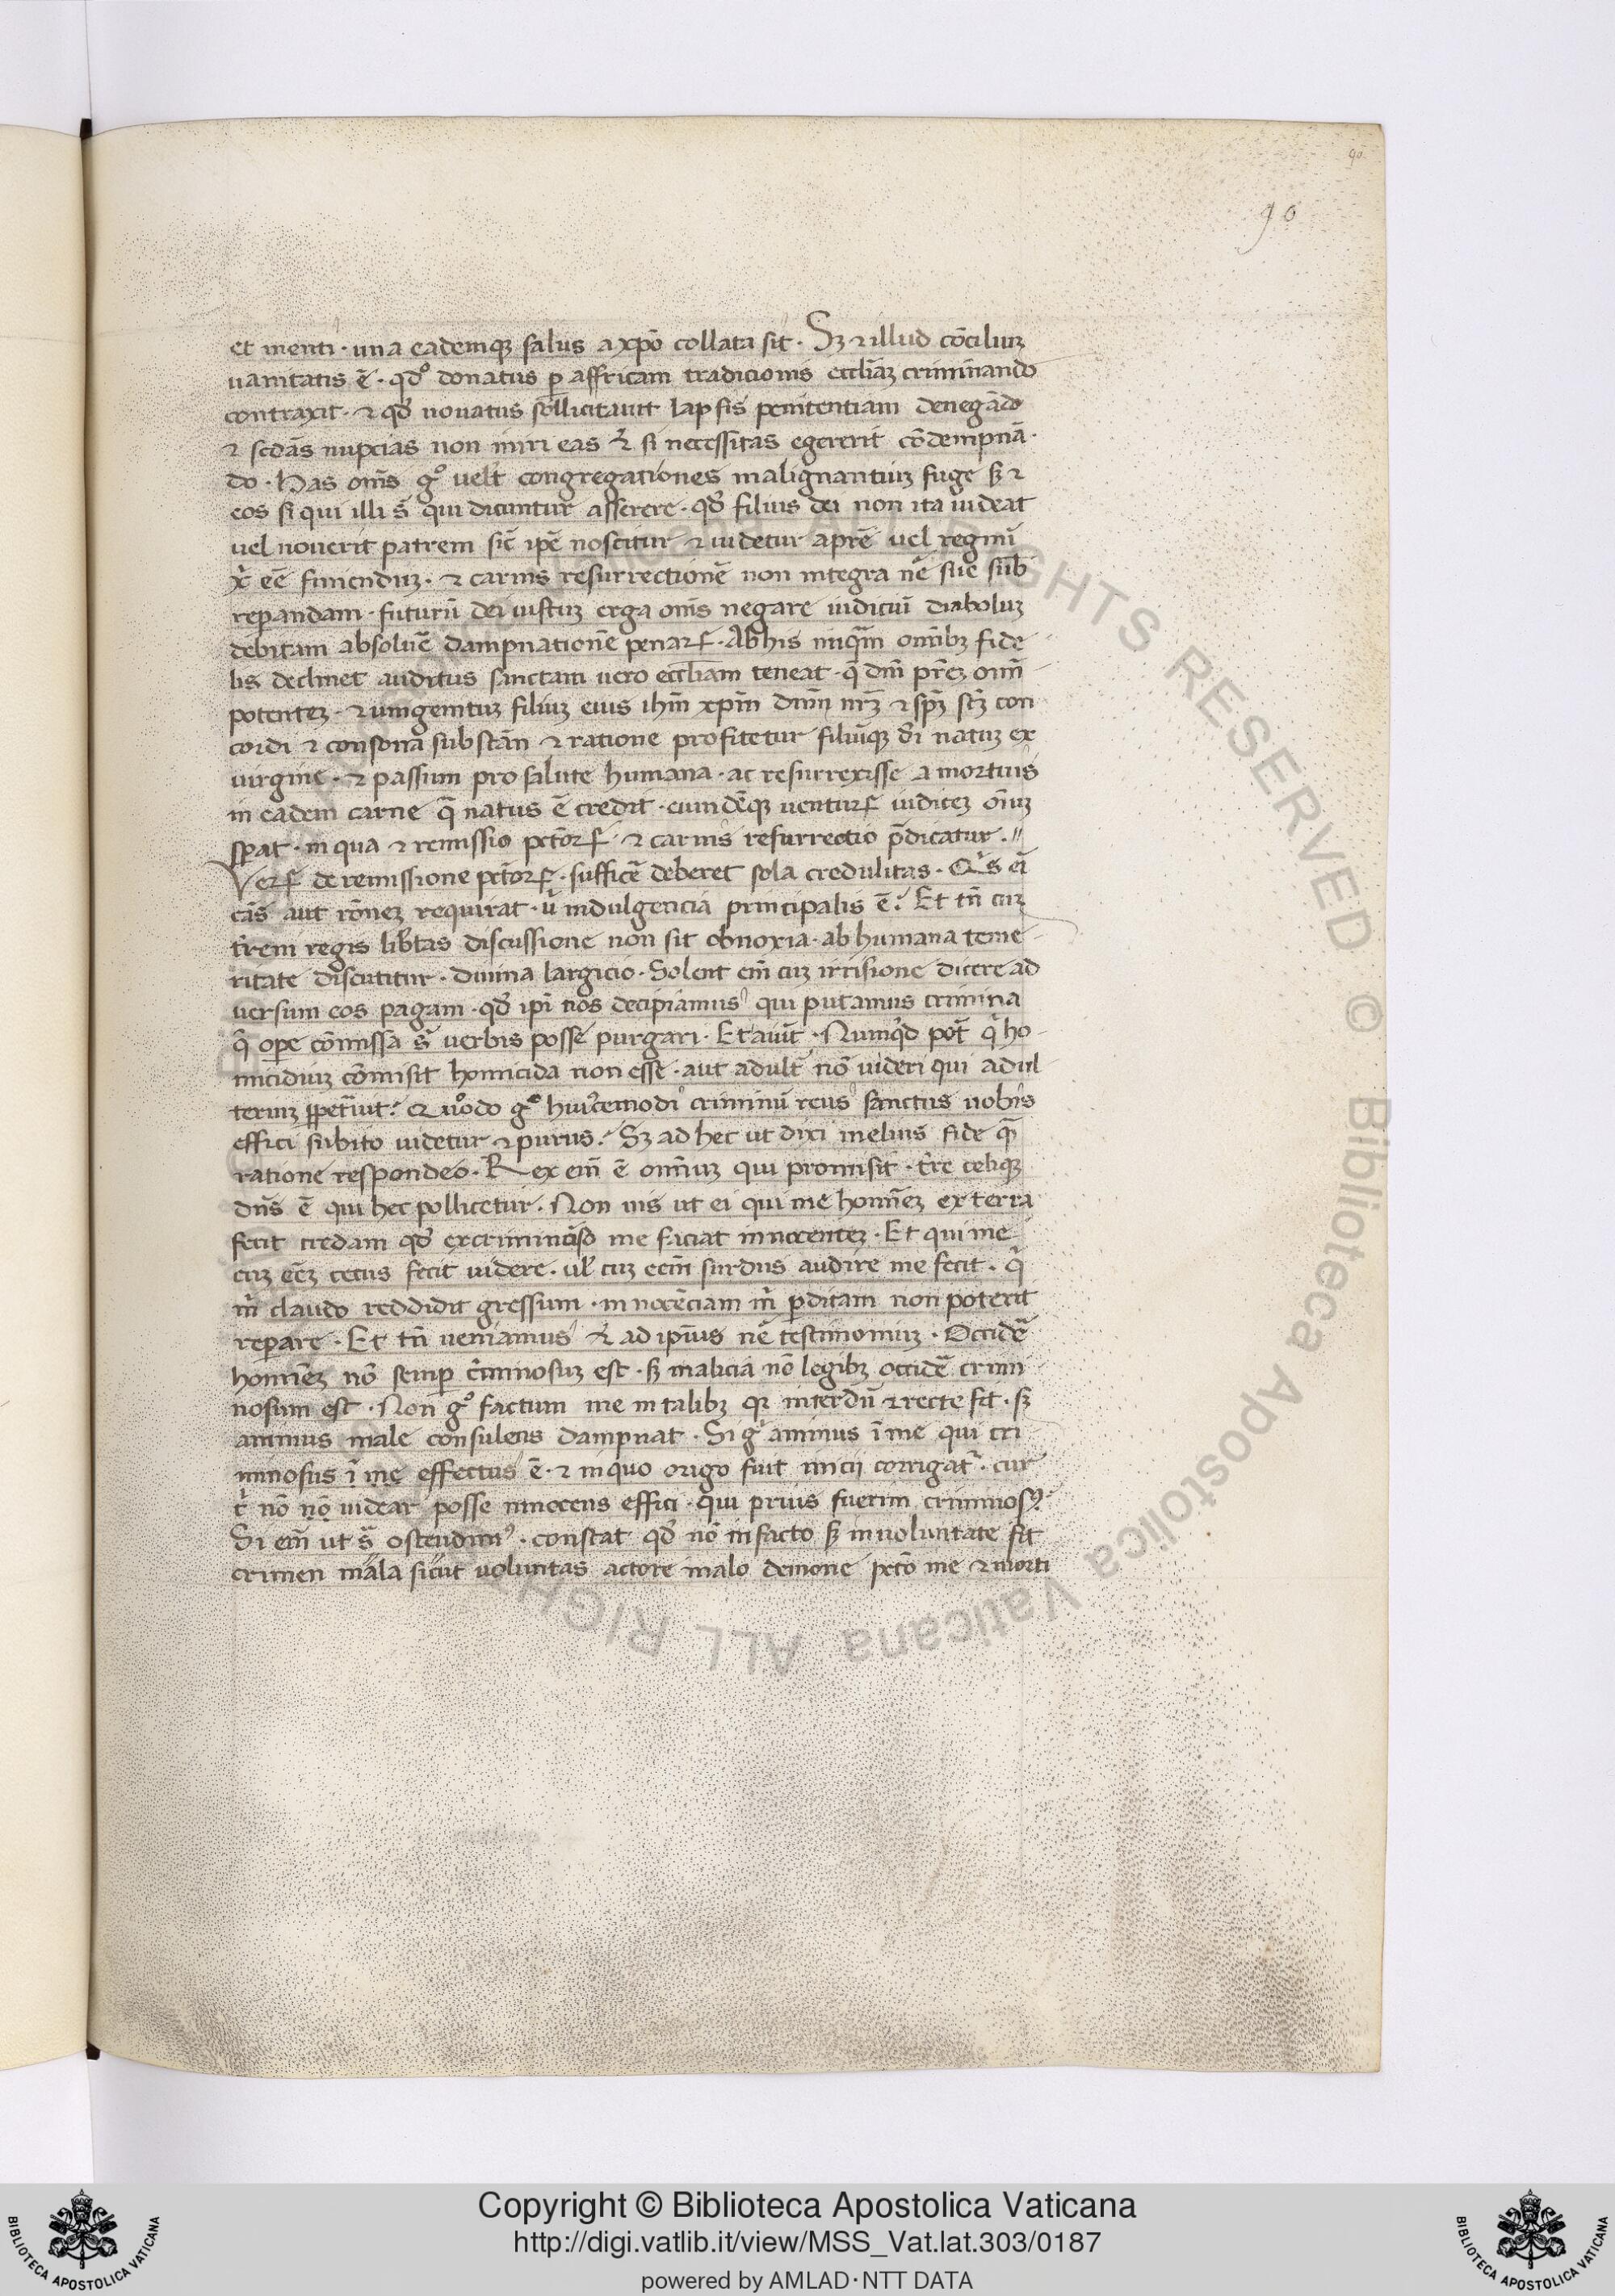 90
90
et menti · una eademqꝫ salus a xpō collata sit · Sꝫ ⁊ illud cōciliuꝫ
uanitatis ē · qdº donatus ꝑ affricam tradicionis eccliāꝫ criminando
contraxit · ⁊ qđ nouatus sollicitauit lapsis penitentiam denegādo
⁊ scdās nupcias non iniri eas ⁊̄ si necessitas egererit cōdempnā·
do · Has om̄s gº uelt congregationes malignantiuꝫ fuge sꝫ ⁊
eos si qui illi s̄ qui dicuntur asserere · qđ filius dei non ita uideat
uel nouerit patrem sic̄ ip̄e noscitur ⁊ uidetur a pr̄e uel regnū
xⁱ eē finienduꝫ · ⁊ carnis resurrectionē non integra nē sue sub̄
reꝑandam · futurū dei iustuꝫ erga om̄s negare iudiciū diaboluꝫ
debitam absoluē dampnatione penarꝝ · Ab his niqꝫm om̄ibꝫ fide
lis declinet auditus sanctam uero eccliam teneat · q̄ dm̄ pr̄eꝫ om̄i
potenteꝫ · ⁊ unigenituꝫ filiuꝫ eius ihm̄ xpm̄ dnm̄ nr̄ꝫ ⁊ sp̄ꝫ sc̄ꝫ con
cordi ⁊ consona substān ⁊ ratione profitetur filiūqꝫ di natuꝫ ex
virgine · ⁊ passum pro salute humana · ac resurrexisse a mortuis
in eadem carne q̄ natus ē credit · eundēqꝫ venturꝝ iudiceꝫ oīuꝫ
sꝑat · in qua ⁊ remissio pctōrꝝ ⁊ carnis resurrectio p̄dicatur · //
Verꝝ de remissione pctōrꝝ · sufficē deberet sola credulitas · Qⁱs eī
cās aut rōneꝫ requirat · u̇ indulgencia principalis ē? Et tn̄ cuꝫ
tr̄rem regis lib̄tas discussione non sit obnoxia · ab humana teme
ritate discutitur · diuina largicio · Solent em̄ cuꝫ irrisione dicere ad
versum eos pagani · qđ ipi nos decipiamus qui putamus crimina
q̄ ope cōmissa s̄ verbis posse purgari · Et aiūt · Numqⁱd pot̄ qⁱ ho-
micidiuꝫ cōmisit homicida non esse · aut adult̄ nō uideri qui adul
teriuꝫ ꝑpet̄uit? Quōdo gº huiꝰcemodi criminū reus sanctus nobis
effici subito uidetur ⁊ purus? Sꝫ ad hec ut dixi melius fide q̄
ratione respondeo · Rex em̄ ē om̄iuꝫ qui promisit · tr̄re celiqꝫ
dn̄s ē qui hec pollicetur · Non uis ut ei qui me homīeꝫ ex terra
fecit credam qđ ex criminōso me faciat innocenteꝫ · Et qui me
cuꝫ eēꝫ cecus fecit uidere · ul cuꝫ eem̄ surdus audire me fecit · qⁱ
m̄ claudo reddidit gressum · innocēciam m̄ ꝑditam non poterit
reꝑare · Et tn̄ veniamus ⁊̄ ad ipius nē testimoniuꝫ · Occidē
homīeꝫ nō semꝑ cⁱminosuꝫ est · sꝫ malicia nō legibꝫ occidē crimi
nosum est · Non gº factum me in talibꝫ qꝛ interdū ⁊ recte fit · sꝫ
animus male consulens dampnat · Si gº animus ī me qui cri
minosus ī me effectus ē · ⁊ in quo origo fuit uicii corrigatʳ · cur
tⁱ nō nō uidear posse innocens effici · qui prius fuerim criminosꝰ?
Si em̄ ut sᵃ ostendimꝰ · constat qđ nō in facto sꝫ in uoluntate fit
crimen mala sicut voluntas actore malo demone pctō me ⁊ morti
Copyright © Biblioteca Apostolica Vaticana
http://digi.vatlib.it/view/MSS_Vat.lat.303/0187
powered by AMLAD·NTT DATA
BIBLIOTECA APOSTOLICA VATICANA
BIBLIOTECA APOSTOLICA VATICANA